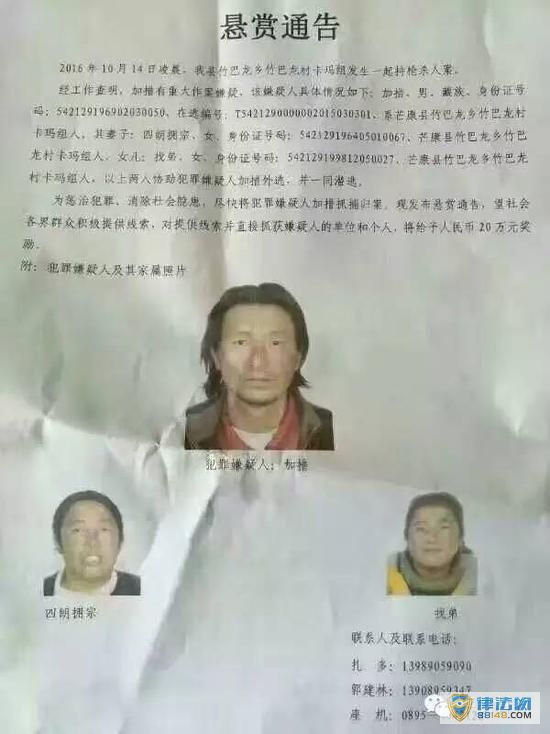 悬赏通告
2016年10月14日凌晨，我县竹巴龙乡竹巴龙村卡玛组发生一起持枪杀人案。
经工作查明，加措有重大作案嫌疑，该嫌疑人具体情况如下：加措、男、藏族、身份证号
码：542129196902030050、在逃编号：T5421290000002015030301、系芒康县竹巴龙乡竹巴龙村
卡玛组人，其妻子：四朗拥宗、女、身份证号码：542129196405010067、芒康县竹巴龙乡竹巴
龙村卡玛组人，女儿：找弟、女、身份证号码：542129199812050027、芒康县竹巴龙乡竹巴龙
村卡玛组人，以上两人协助犯罪嫌疑人加措外逃，并一同潜逃。
为惩治犯罪、消除社会隐患，尽快将犯罪嫌疑人加措抓捕归案。现发布悬赏通告，望社会
各界群众积极提供线索，对提供线索并直接抓获嫌疑人的单位和个人，将给予人民币20万元奖
励。
附：犯罪嫌疑人及其家属照片
犯罪嫌疑人：加措
四朗拥宗
找弟
联系人及联系电话：
扎 多：13989059090
郭建林：13908959347
座 机：0895-
律法网
88148.com